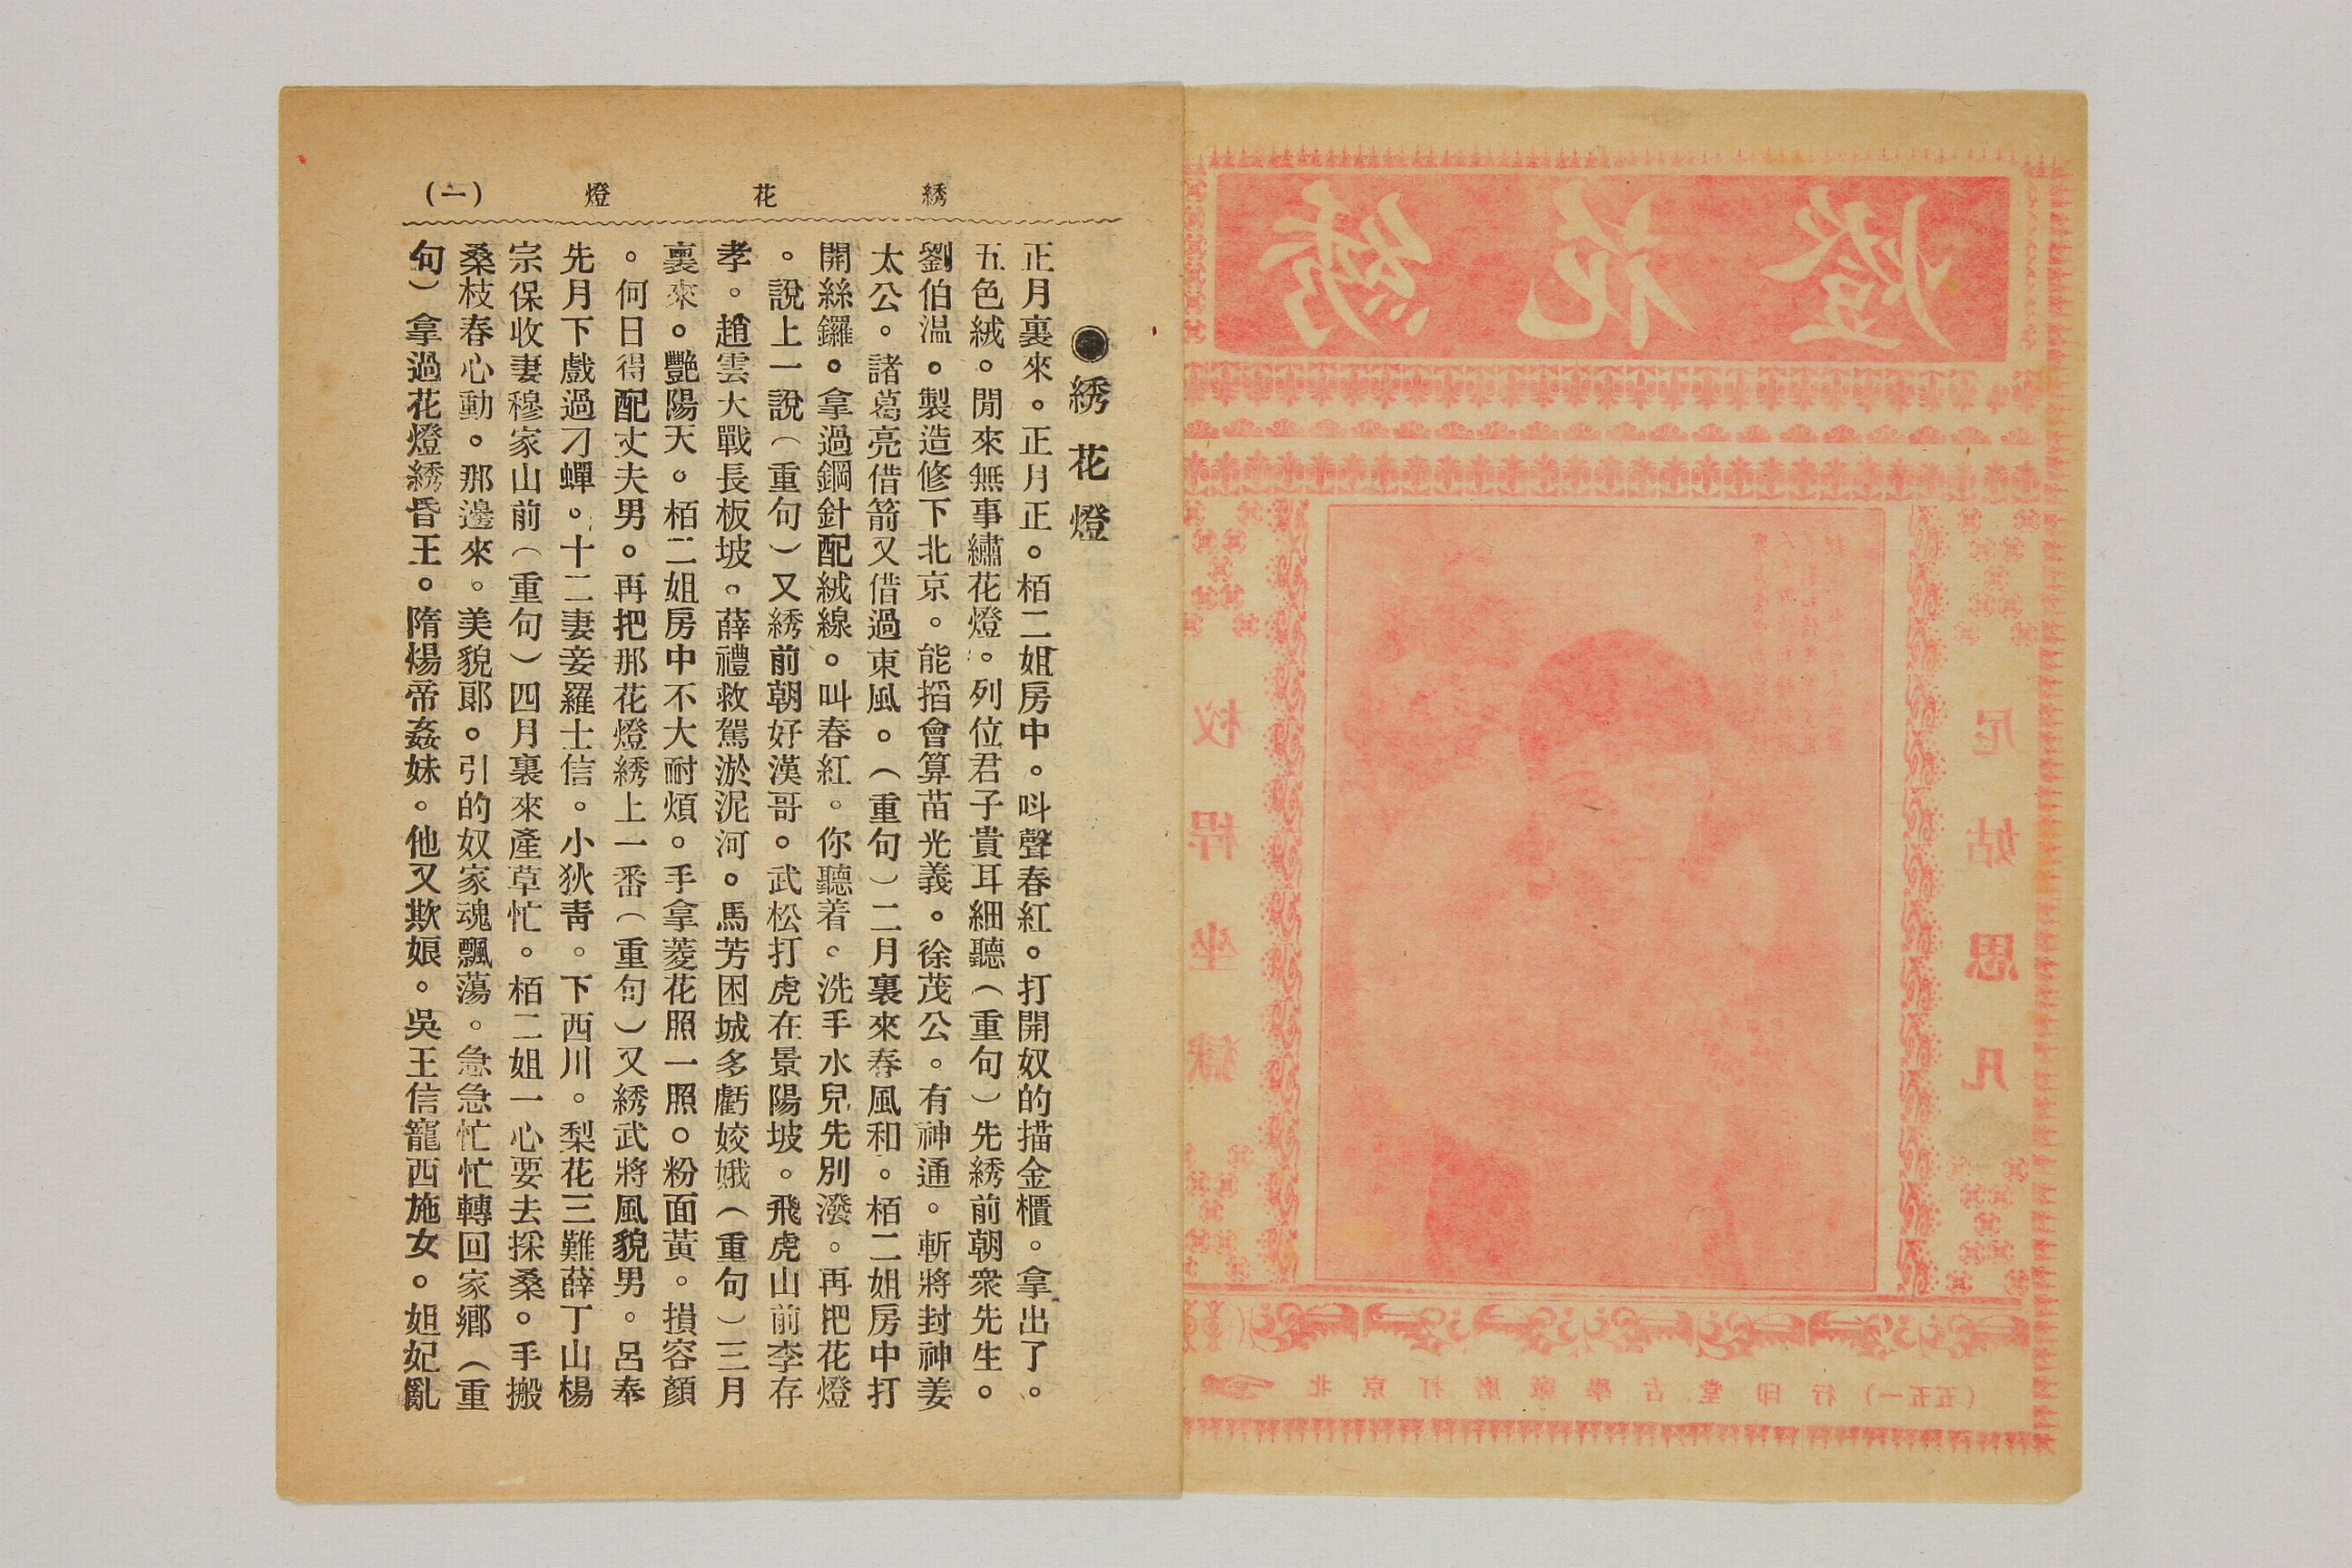 綉花燈
尼姑思凡
杈桿坐獄
北京打磨廠學古堂印行(一五五)
綉花燈(一)
●綉花燈
正月裏來。正月正。栢二姐房中。呌聲春紅。打開奴的描金櫃。拿出了。
五色絨。閒來無事繡花燈。列位君子貴耳細聽(重句)先綉前朝衆先生。
劉伯温。製造修下北京。能搯會算苗光義。徐茂公。有神通。斬將封神姜
太公。諸葛亮借箭又借過東風。(重句)二月裏來春風和。栢二姐房中打
開絲鑼。拿過鋼針配絨線。叫春紅。你聽着。洗手水兒先別潑。再把花燈
。說上一說(重句)又綉前朝好漢哥。武松打虎在景陽坡。飛虎山前李存
孝。趙雲大戰長板坡。薛禮救駕淤泥河。馬芳困城多虧姣娥(重句)三月
裏來。艷陽天。栢二姐房中不大耐煩。手拿菱花照一照。粉面黃。損容顏
。何日得配丈夫男。再把那花燈綉上一番(重句)又綉武將風貌男。呂奉
先月下戲過刁蟬。十二妻妾羅士信。小狄靑。下西川。梨花三難薛丁山楊
宗保收妻穆家山前(重句)四月裏來產草忙。栢二姐一心要去採桑。手搬
桑枝春心動。那邊來。美貌郎。引的奴家魂飄蕩。急急忙忙轉回家鄉(重
句)拿過花燈綉昏王。隋煬帝姦妹。他又欺娘。吳王信寵西施女。妲妃亂